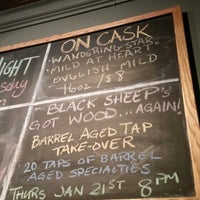 ON CASK
WANDERING STAR
"MILD AT HEART"
ENGLISH MILD
16oz / $8
IGHT
"BLACK SHEEP'S
GOT WOOD...AGAIN!
BARREL AGED TAP
TAKE-OVER
20 TAPS OF BARREL
AGED SPECIALTIES
THURS JAN 21ST 8PM